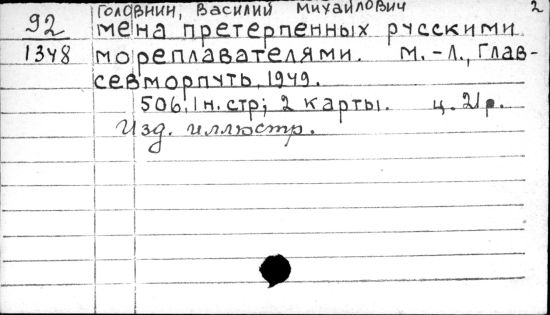 Головнин, Василий Михайлович 2
92 мена претерпенных русскими
1348 мореплавателями. М.-Л., Глав-
севморпуть, 1949.
506, 1 н. стр; 2 карты. ц. 21 р.
Изд. иллюстр.